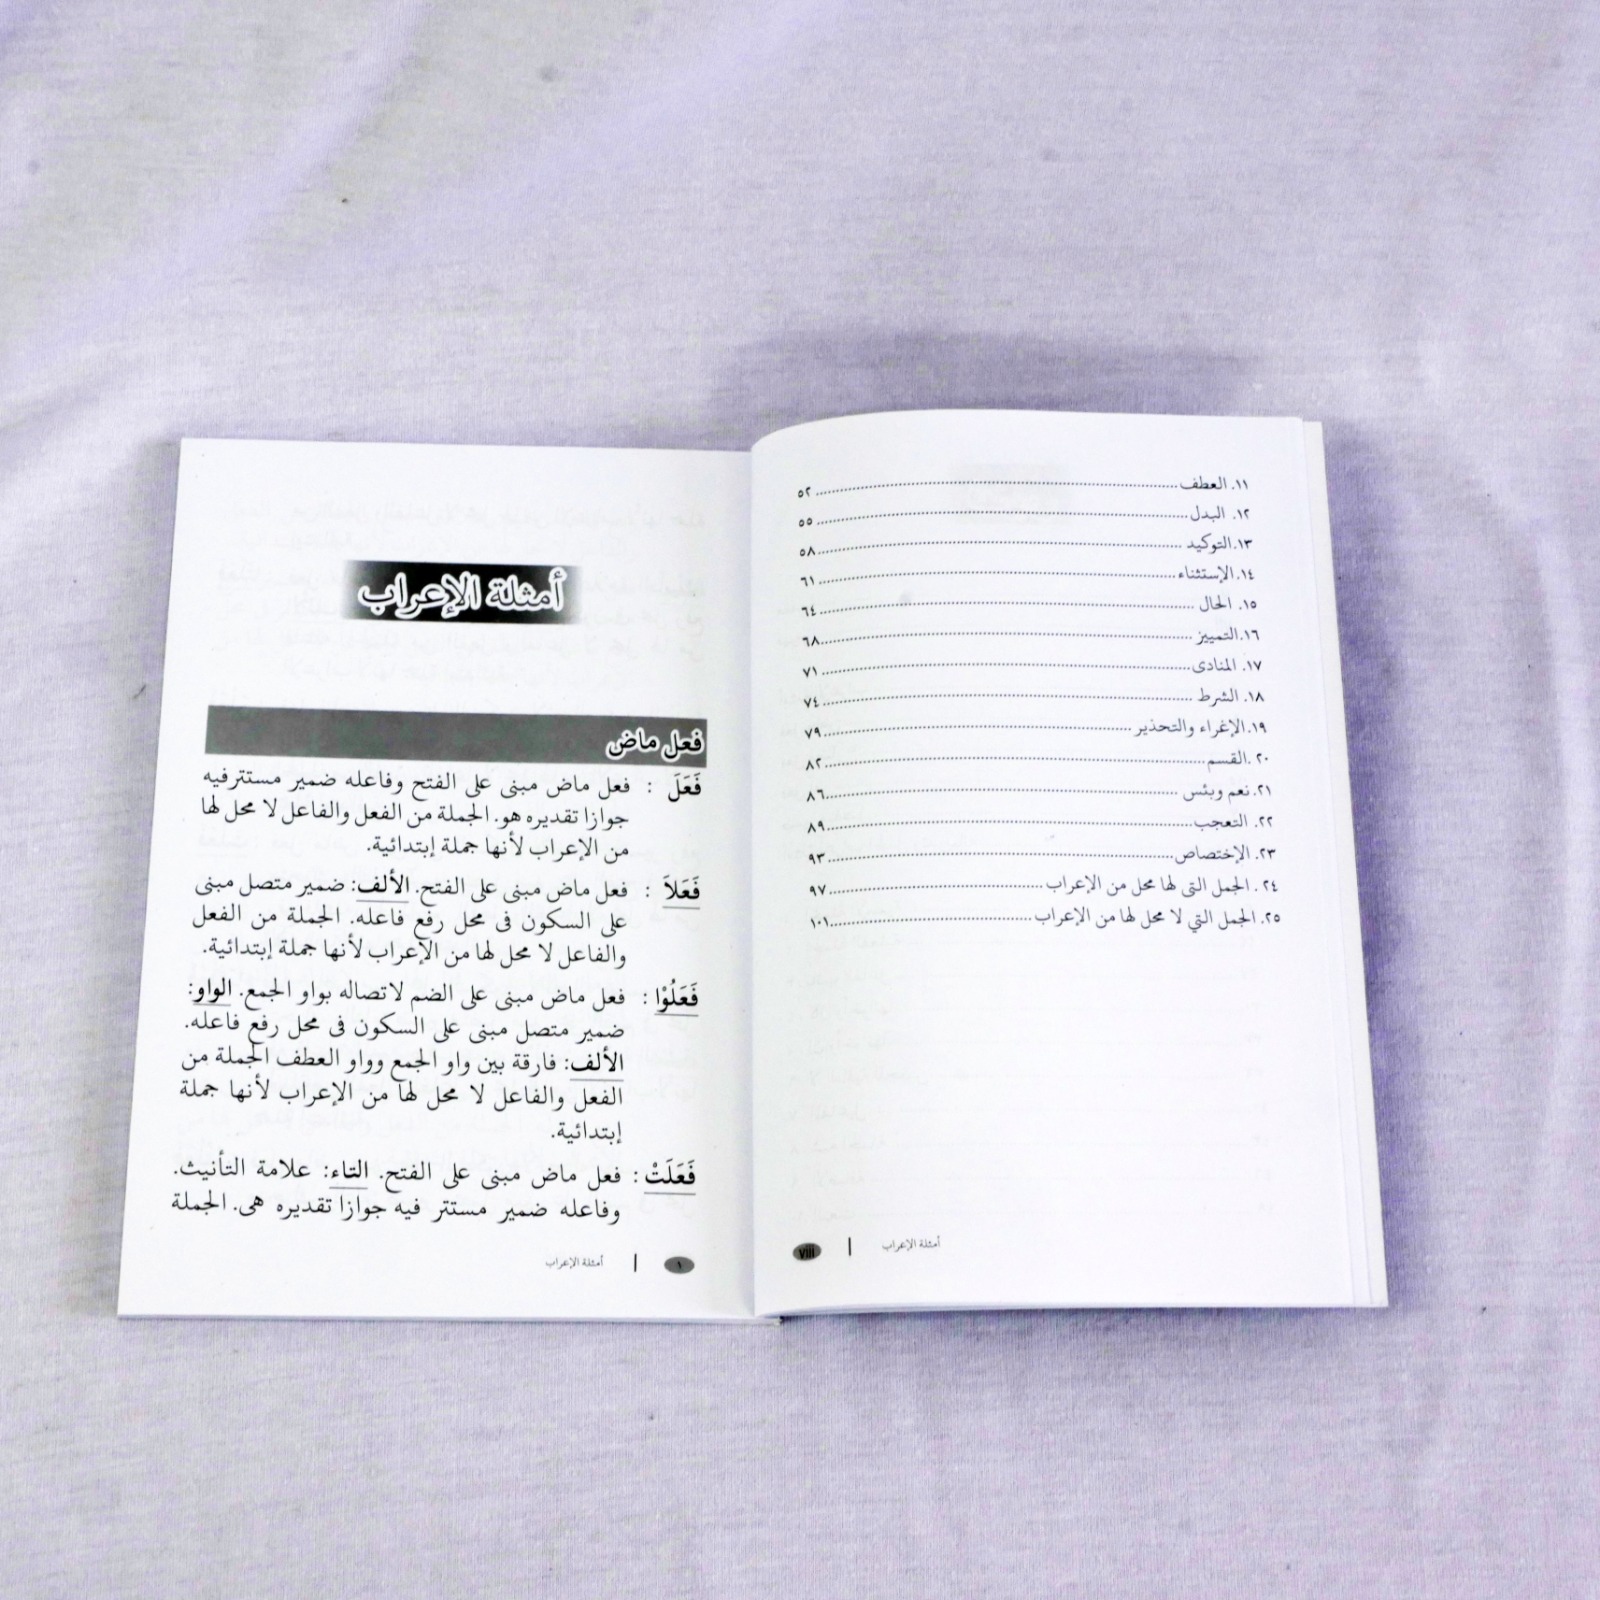 ١١. العطف ........ ٥٢
١٢. البدل ........ ٥٥
١٣. التوكيد ........ ٥٨
١٤. الإستثناء ........ ٦١
١٥. الحال ........ ٦٤
١٦. التمييز ........ ٦٨
١٧. المنادى ........ ٧١
١٨. الشرط ........ ٧٤
١٩. الإغراء والتحذير ........ ٧٩
٢٠. القسم ........ ٨٢
٢١. نعم وبئس ........ ٨٦
٢٢. التعجب ........ ٨٩
٢٣. الإختصاص ........ ٩٣
٢٤. الجمل التى لها محل من الإعراب ........ ٩٧
٢٥. الجمل التي لا محل لها من الإعراب ........ ١٠١
أمثلة الإعراب | viii
أمثلة الإعراب
فعل ماض
فَعَلَ : فعل ماض مبنى على الفتح وفاعله ضمير مستترفيه
جوازا تقديره هو. الجملة من الفعل والفاعل لا محل لها
من الإعراب لأنها جملة إبتدائية.
فَعَلاَ : فعل ماض مبنى على الفتح. الألف: ضمير متصل مبنى
على السكون فى محل رفع فاعله. الجملة من الفعل
والفاعل لا محل لها من الإعراب لأنها جملة إبتدائية.
فَعَلُوْا : فعل ماض مبنى على الضم لاتصاله بواو الجمع. الواو:
ضمير متصل مبنى على السكون فى محل رفع فاعله.
الألف: فارقة بين واو الجمع وواو العطف الجملة من
الفعل والفاعل لا محل لها من الإعراب لأنها جملة
إبتدائية.
فَعَلَتْ : فعل ماض مبنى على الفتح. التاء: علامة التأنيث.
وفاعله ضمير مستتر فيه جوازا تقديره هى. الجملة
١ | أمثلة الإعراب